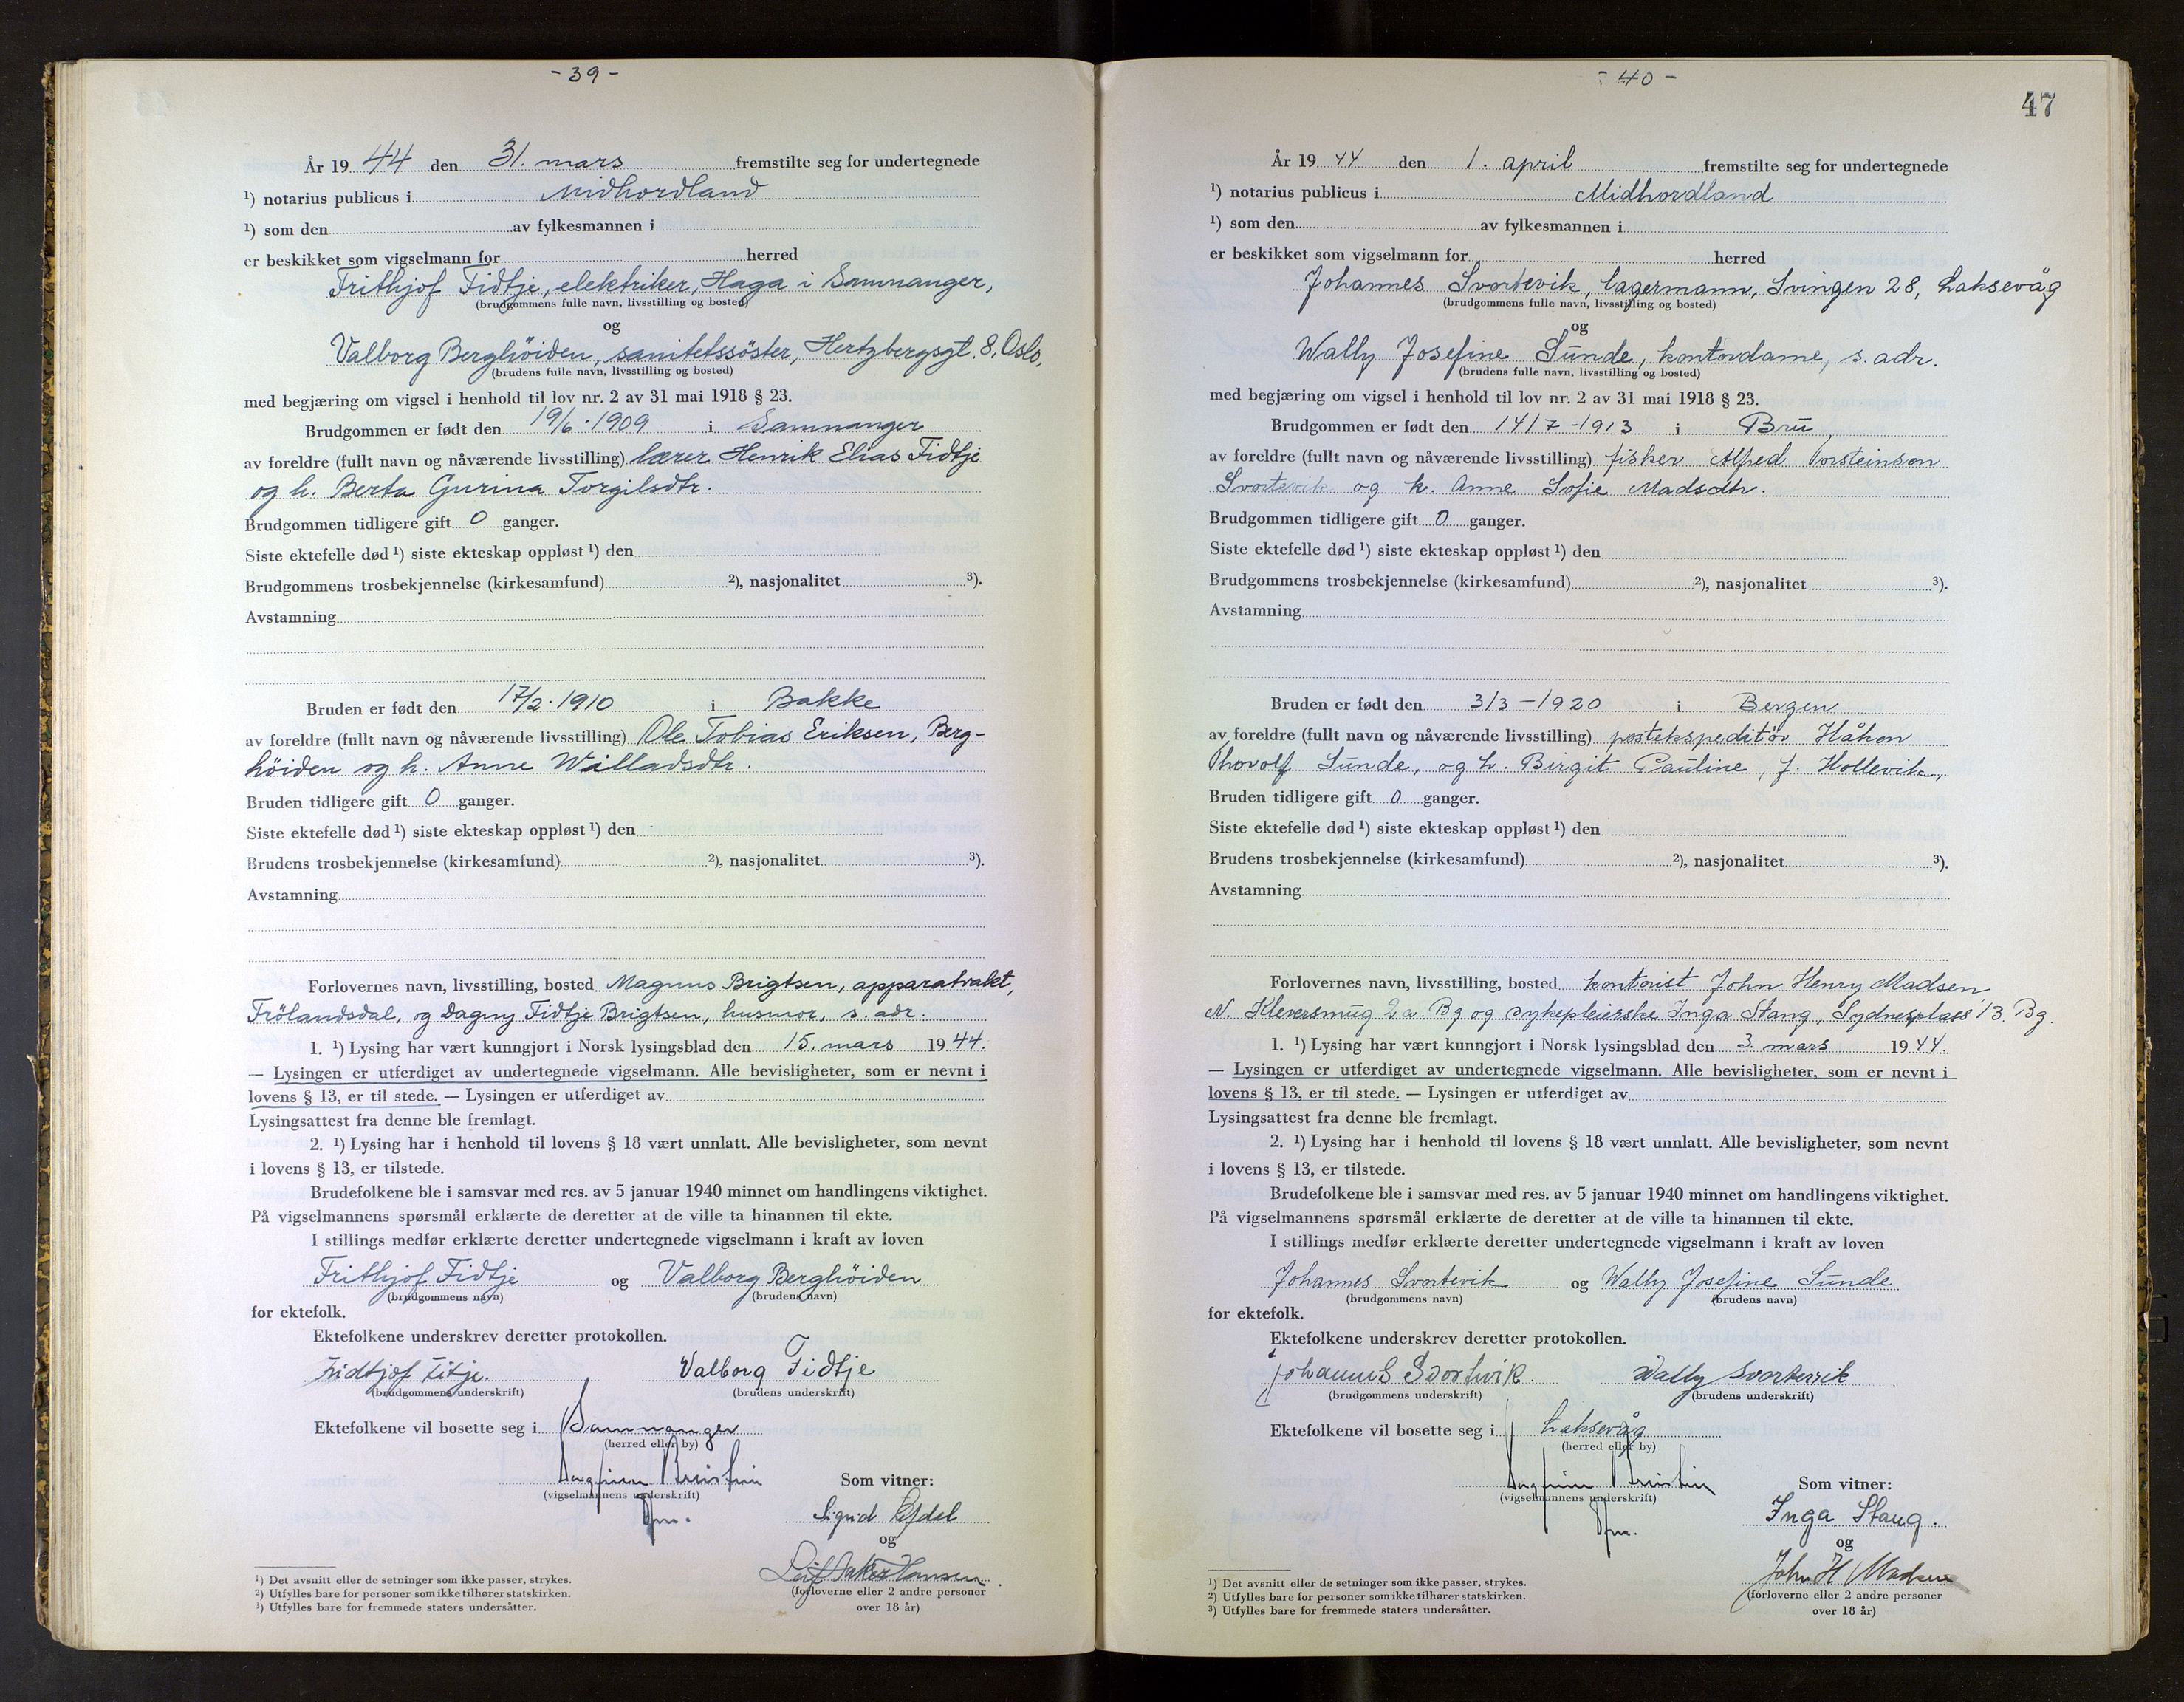 - 39 -
År 19 44 den 31. mars fremstilte seg for undertegnede
¹) notarius publicus i Midhordland
¹) som den av fylkesmannen i
er beskikket som vigselmann for herred
Frithjof Fidtje, elektriker, Haga i Samnanger,
(brudgommens fulle navn, livsstilling og bosted)
og
Valborg Berghöiden, sanitetssöster, Hertzbergsgt. 8, Oslo,
(brudens fulle navn, livsstilling og bosted)
med begjæring om vigsel i henhold til lov nr. 2 av 31 mai 1918 § 23.
Brudgommen er født den 19/6. 1909 i Samnanger
av foreldre (fullt navn og nåværende livsstilling) lærer Henrik Elias Fidtje
og h. Berta Gurina Torgilsdtr.
Brudgommen tidligere gift 0 ganger.
Siste ektefelle død ¹) siste ekteskap oppløst ¹) den
Brudgommens trosbekjennelse (kirkesamfund) ²), nasjonalitet ³).
Avstamning
Bruden er født den 17/2. 1910 i Bakke
av foreldre (fullt navn og nåværende livsstilling) Ole Tobias Eriksen, Berg-
höiden og h. Anne Willadsdtr.
Bruden tidligere gift 0 ganger.
Siste ektefelle død ¹) siste ekteskap oppløst ¹) den
Brudens trosbekjennelse (kirkesamfund) ²), nasjonalitet ³).
Avstamning
Forlovernes navn, livsstilling, bosted Magnus Brigtsen, apparatvakt,
Frölandsdal, og Dagny Fidtje Brigtsen, husmor, s. adr.
1. ¹) Lysing har vært kunngjort i Norsk lysingsblad den 15. mars 19 44.
— Lysingen er utferdiget av undertegnede vigselmann. Alle bevisligheter, som er nevnt i
lovens § 13, er til stede. — Lysingen er utferdiget av
Lysingsattest fra denne ble fremlagt.
2. ¹) Lysing har i henhold til lovens § 18 vært unnlatt. Alle bevisligheter, som nevnt
i lovens § 13, er tilstede.
Brudefolkene ble i samsvar med res. av 5 januar 1940 minnet om handlingens viktighet.
På vigselmannens spørsmål erklærte de deretter at de ville ta hinannen til ekte.
I stillings medfør erklærte deretter undertegnede vigselmann i kraft av loven
Frithjof Fidtje og Valborg Berghöiden
(brudgommens navn) (brudens navn)
for ektefolk.
Ektefolkene underskrev deretter protokollen.
Fridtjof Fitje. Valborg Fidtje
(brudgommens underskrift) (brudens underskrift)
Ektefolkene vil bosette seg i Samnanger
(herred eller by)
Som vitner:
(vigselmannens underskrift)
Sigrid
og
Leif Hansen.
(forloverne eller 2 andre personer
over 18 år)
¹) Det avsnitt eller de setninger som ikke passer, strykes.
²) Utfylles bare for personer som ikke tilhører statskirken.
³) Utfylles bare for fremmede staters undersåtter.
- 40 -
47
År 19 44 den 1. april fremstilte seg for undertegnede
¹) notarius publicus i Midhordland
¹) som den av fylkesmannen i
er beskikket som vigselmann for herred
Johannes Svortevik, lagermann, Svingen 28, Laksevåg
(brudgommens fulle navn, livsstilling og bosted)
og
Wally Josefine Sunde, kontordame, s. adr.
(brudens fulle navn, livsstilling og bosted)
med begjæring om vigsel i henhold til lov nr. 2 av 31 mai 1918 § 23.
Brudgommen er født den 14/7 - 1913 i Bru,
av foreldre (fullt navn og nåværende livsstilling) fisker Alfred Torsteinson
Svortevik og h. Anne Sofie Madsdtr.
Brudgommen tidligere gift 0 ganger.
Siste ektefelle død ¹) siste ekteskap oppløst ¹) den
Brudgommens trosbekjennelse (kirkesamfund) ²), nasjonalitet ³).
Avstamning
Bruden er født den 3/3 - 1920 i Bergen
av foreldre (fullt navn og nåværende livsstilling) postekspeditör Håkon
Thorolf Sunde, og h. Birgit Pauline, f. Hollevik,
Bruden tidligere gift 0 ganger.
Siste ektefelle død ¹) siste ekteskap oppløst ¹) den
Brudens trosbekjennelse (kirkesamfund) ²), nasjonalitet ³).
Avstamning
Forlovernes navn, livsstilling, bosted kontorist John Henry Madsen,
N. Kleversmug 2a. Bg og sykepleierske Inga Stang, Sydnesplass 13. Bg.
1. ¹) Lysing har vært kunngjort i Norsk lysingsblad den 3. mars 19 44.
— Lysingen er utferdiget av undertegnede vigselmann. Alle bevisligheter, som er nevnt i
lovens § 13, er til stede. — Lysingen er utferdiget av
Lysingsattest fra denne ble fremlagt.
2. ¹) Lysing har i henhold til lovens § 18 vært unnlatt. Alle bevisligheter, som nevnt
i lovens § 13, er tilstede.
Brudefolkene ble i samsvar med res. av 5 januar 1940 minnet om handlingens viktighet.
På vigselmannens spørsmål erklærte de deretter at de ville ta hinannen til ekte.
I stillings medfør erklærte deretter undertegnede vigselmann i kraft av loven
Johannes Svortevik og Wally Josefine Sunde
(brudgommens navn) (brudens navn)
for ektefolk.
Ektefolkene underskrev deretter protokollen.
Johannes Svortevik. Wally Svortevik
(brudgommens underskrift) (brudens underskrift)
Ektefolkene vil bosette seg i Laksevåg
(herred eller by)
Som vitner:
(vigselmannens underskrift)
Inga Stang.
og
John H Madsen
(forloverne eller 2 andre personer
over 18 år)
¹) Det avsnitt eller de setninger som ikke passer, strykes.
²) Utfylles bare for personer som ikke tilhører statskirken.
³) Utfylles bare for fremmede staters undersåtter.